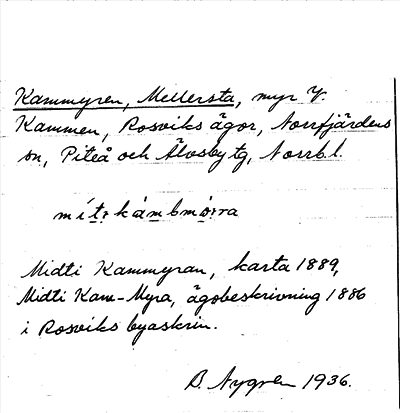 Kammyren, Mellersta, myr V.
Kammen, Rosviks ägor, Norrfjärdens
sn, Piteå och Älvsby tg, Norrb.l.
mítɩ kámbmøʀra
Midti Kammyran, karta 1889,
Midti Kam-Myra, ägobeskrivning 1886
i Rosviks byaskrin.
B. Nygren 1936.